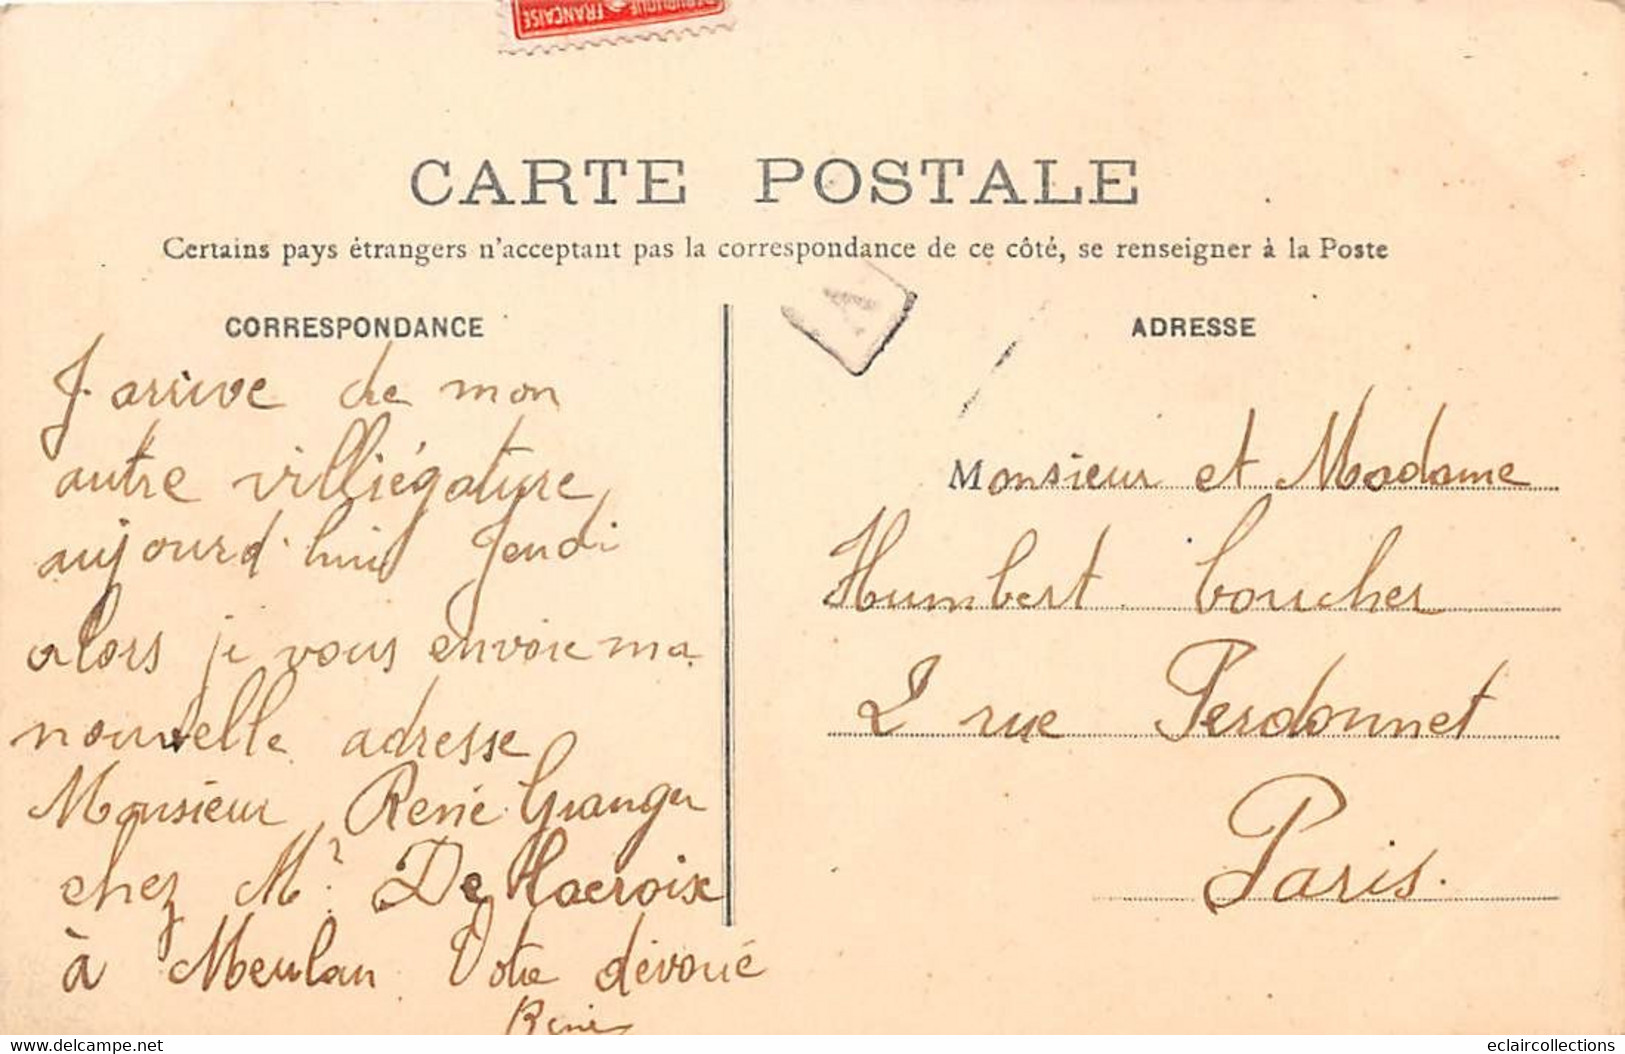 RÉPUBLIQUE FRANÇAISE
CARTE POSTALE
Certains pays étrangers n'acceptant pas la correspondance de ce côté, se renseigner à la Poste
A
CORRESPONDANCE
J. arrive de mon
autre villiégature
aujourd'hui Jeudi
alors je vous envoie ma
nouvelle adresse
Monsieur René Granger
chez Mr. De Lacroix
à Meulan Votre dévoué
René
ADRESSE
Monsieur et Madame
Humbert boucher
2 rue Perdonnet
Paris.
www.delcampe.net
eclaircollections